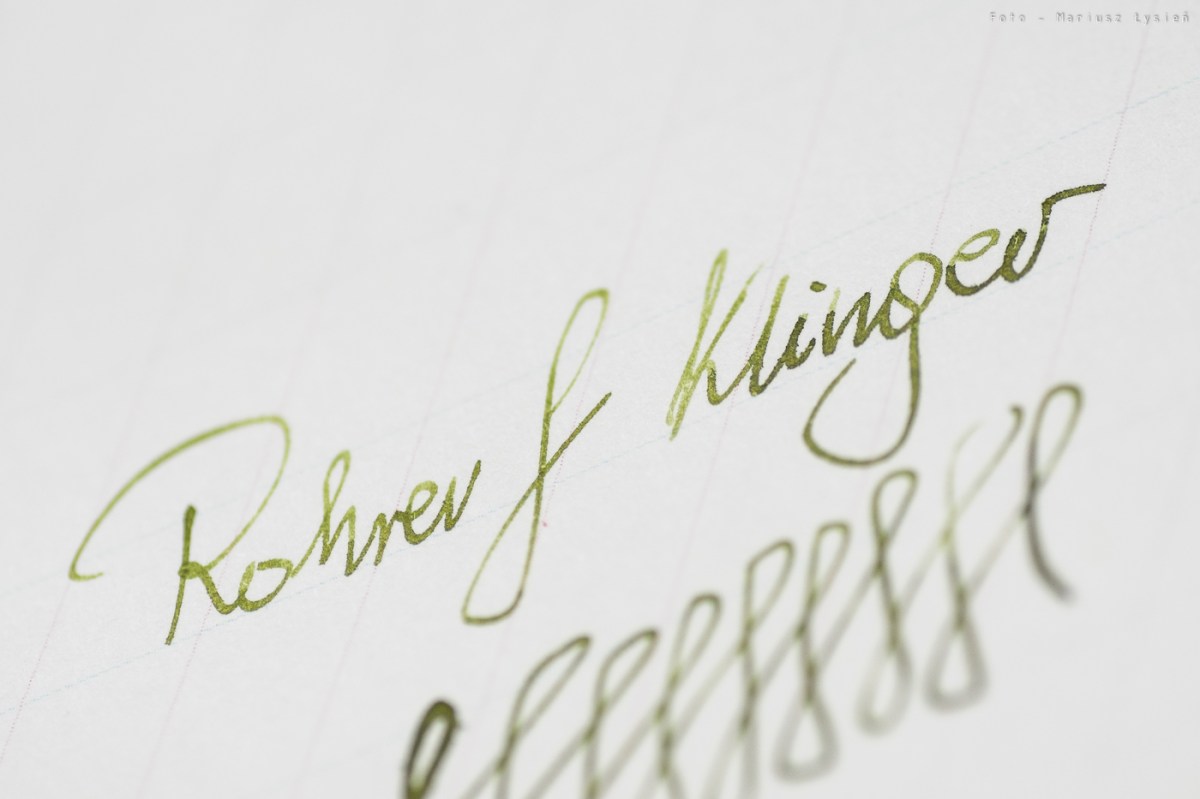 Foto - Mariusz Łysień
Rohrer & Klinger